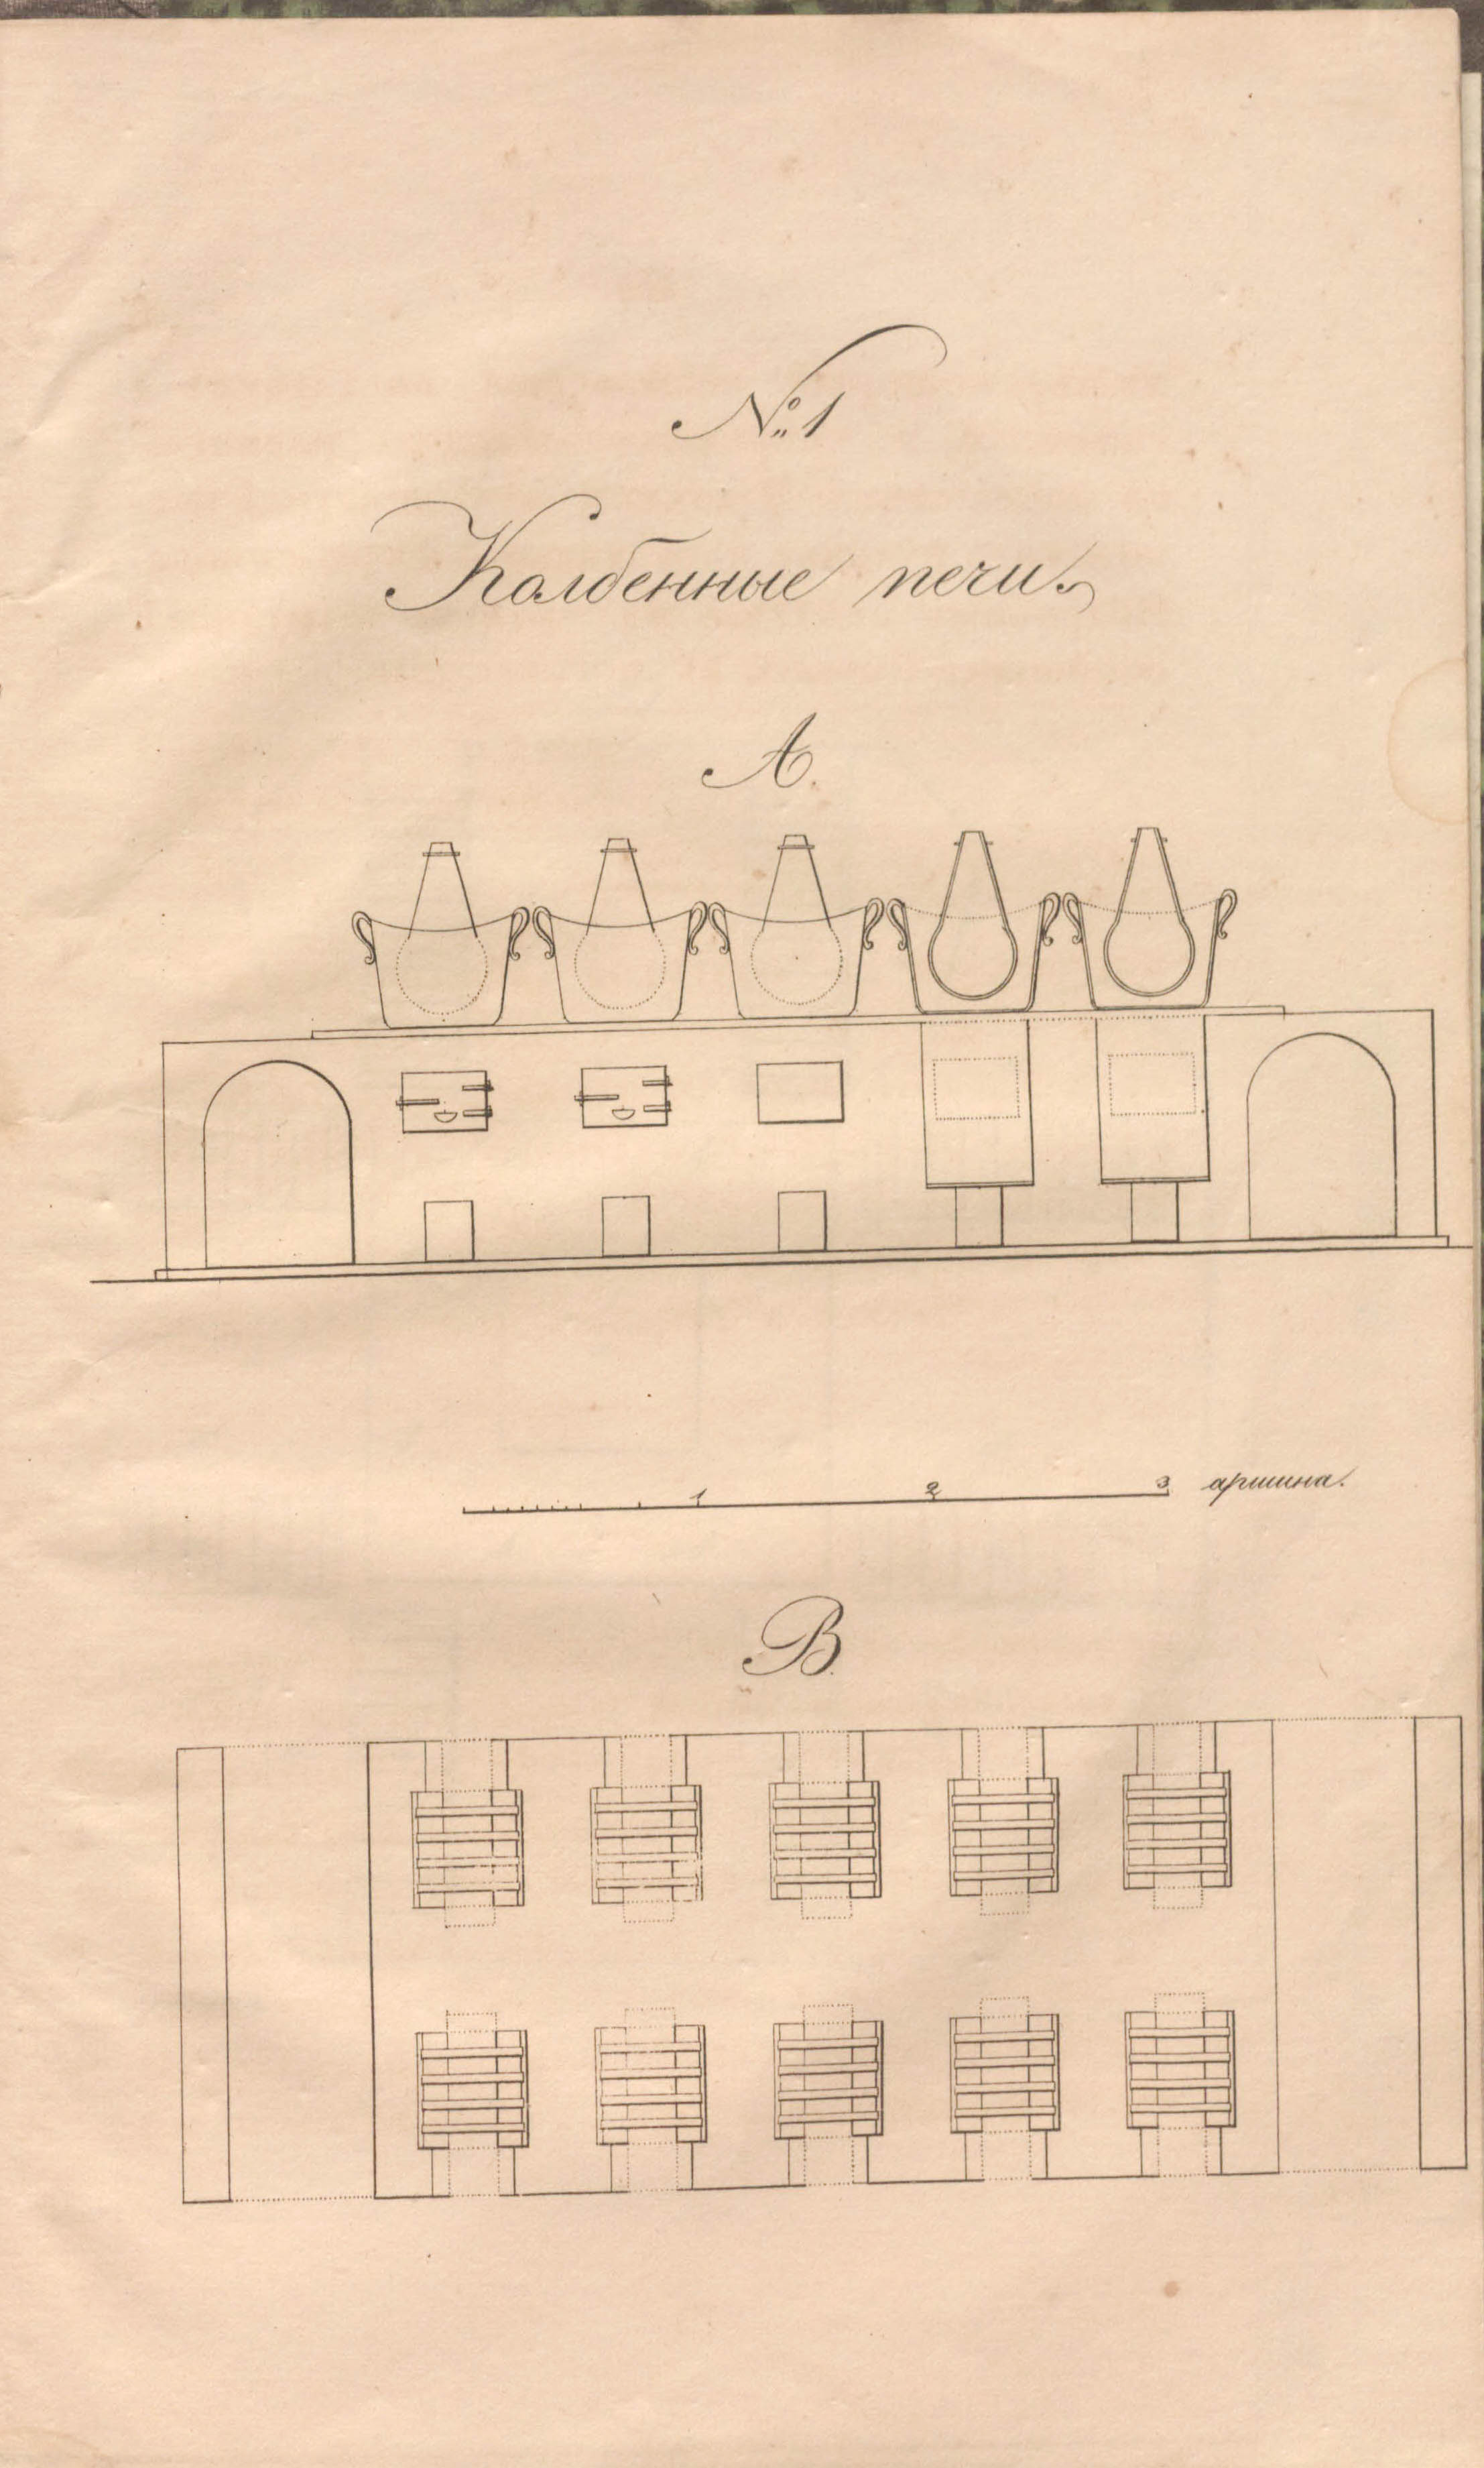 № 1
Колбенные печи.
А.
1 2 3 аршина.
В.